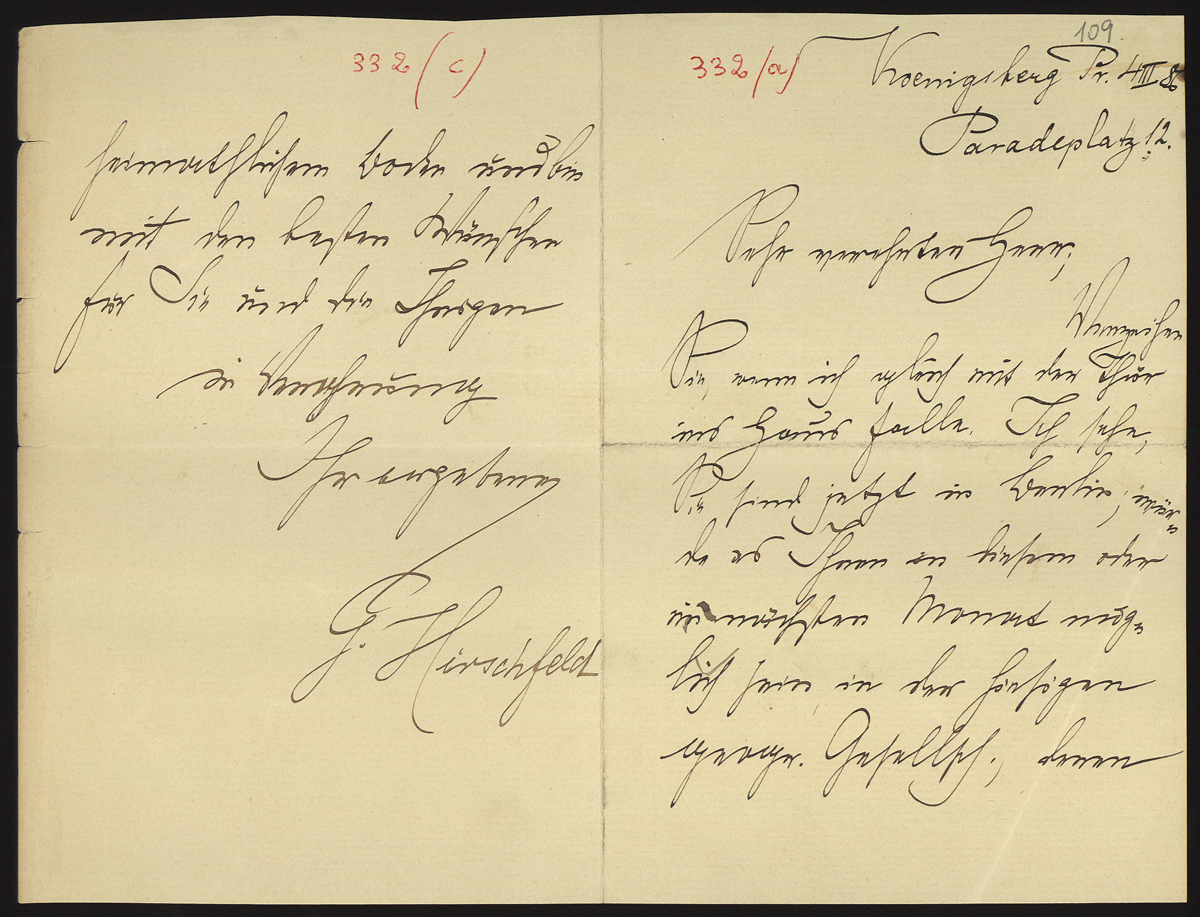 109.
332 (a)
Koenigsberg Pr. 4 III 86
Paradeplatz 12.
Sehr verehrter Herr,
Verzeihen
Sie, wenn ich gleich mit der Thür
ins Haus falle. Ich sehe,
Sie sind jetzt in Berlin; wür=
de es Ihnen in diesem oder
im nächsten Monat mög=
lich sein in der hiesigen
geogr. Gesellsch., deren
332 (c)
heimathlichem Boden und bin
mit den besten Wünschen
für Sie und die Ihrigen
in Verehrung
Ihr ergebener
G. Hirschfeld